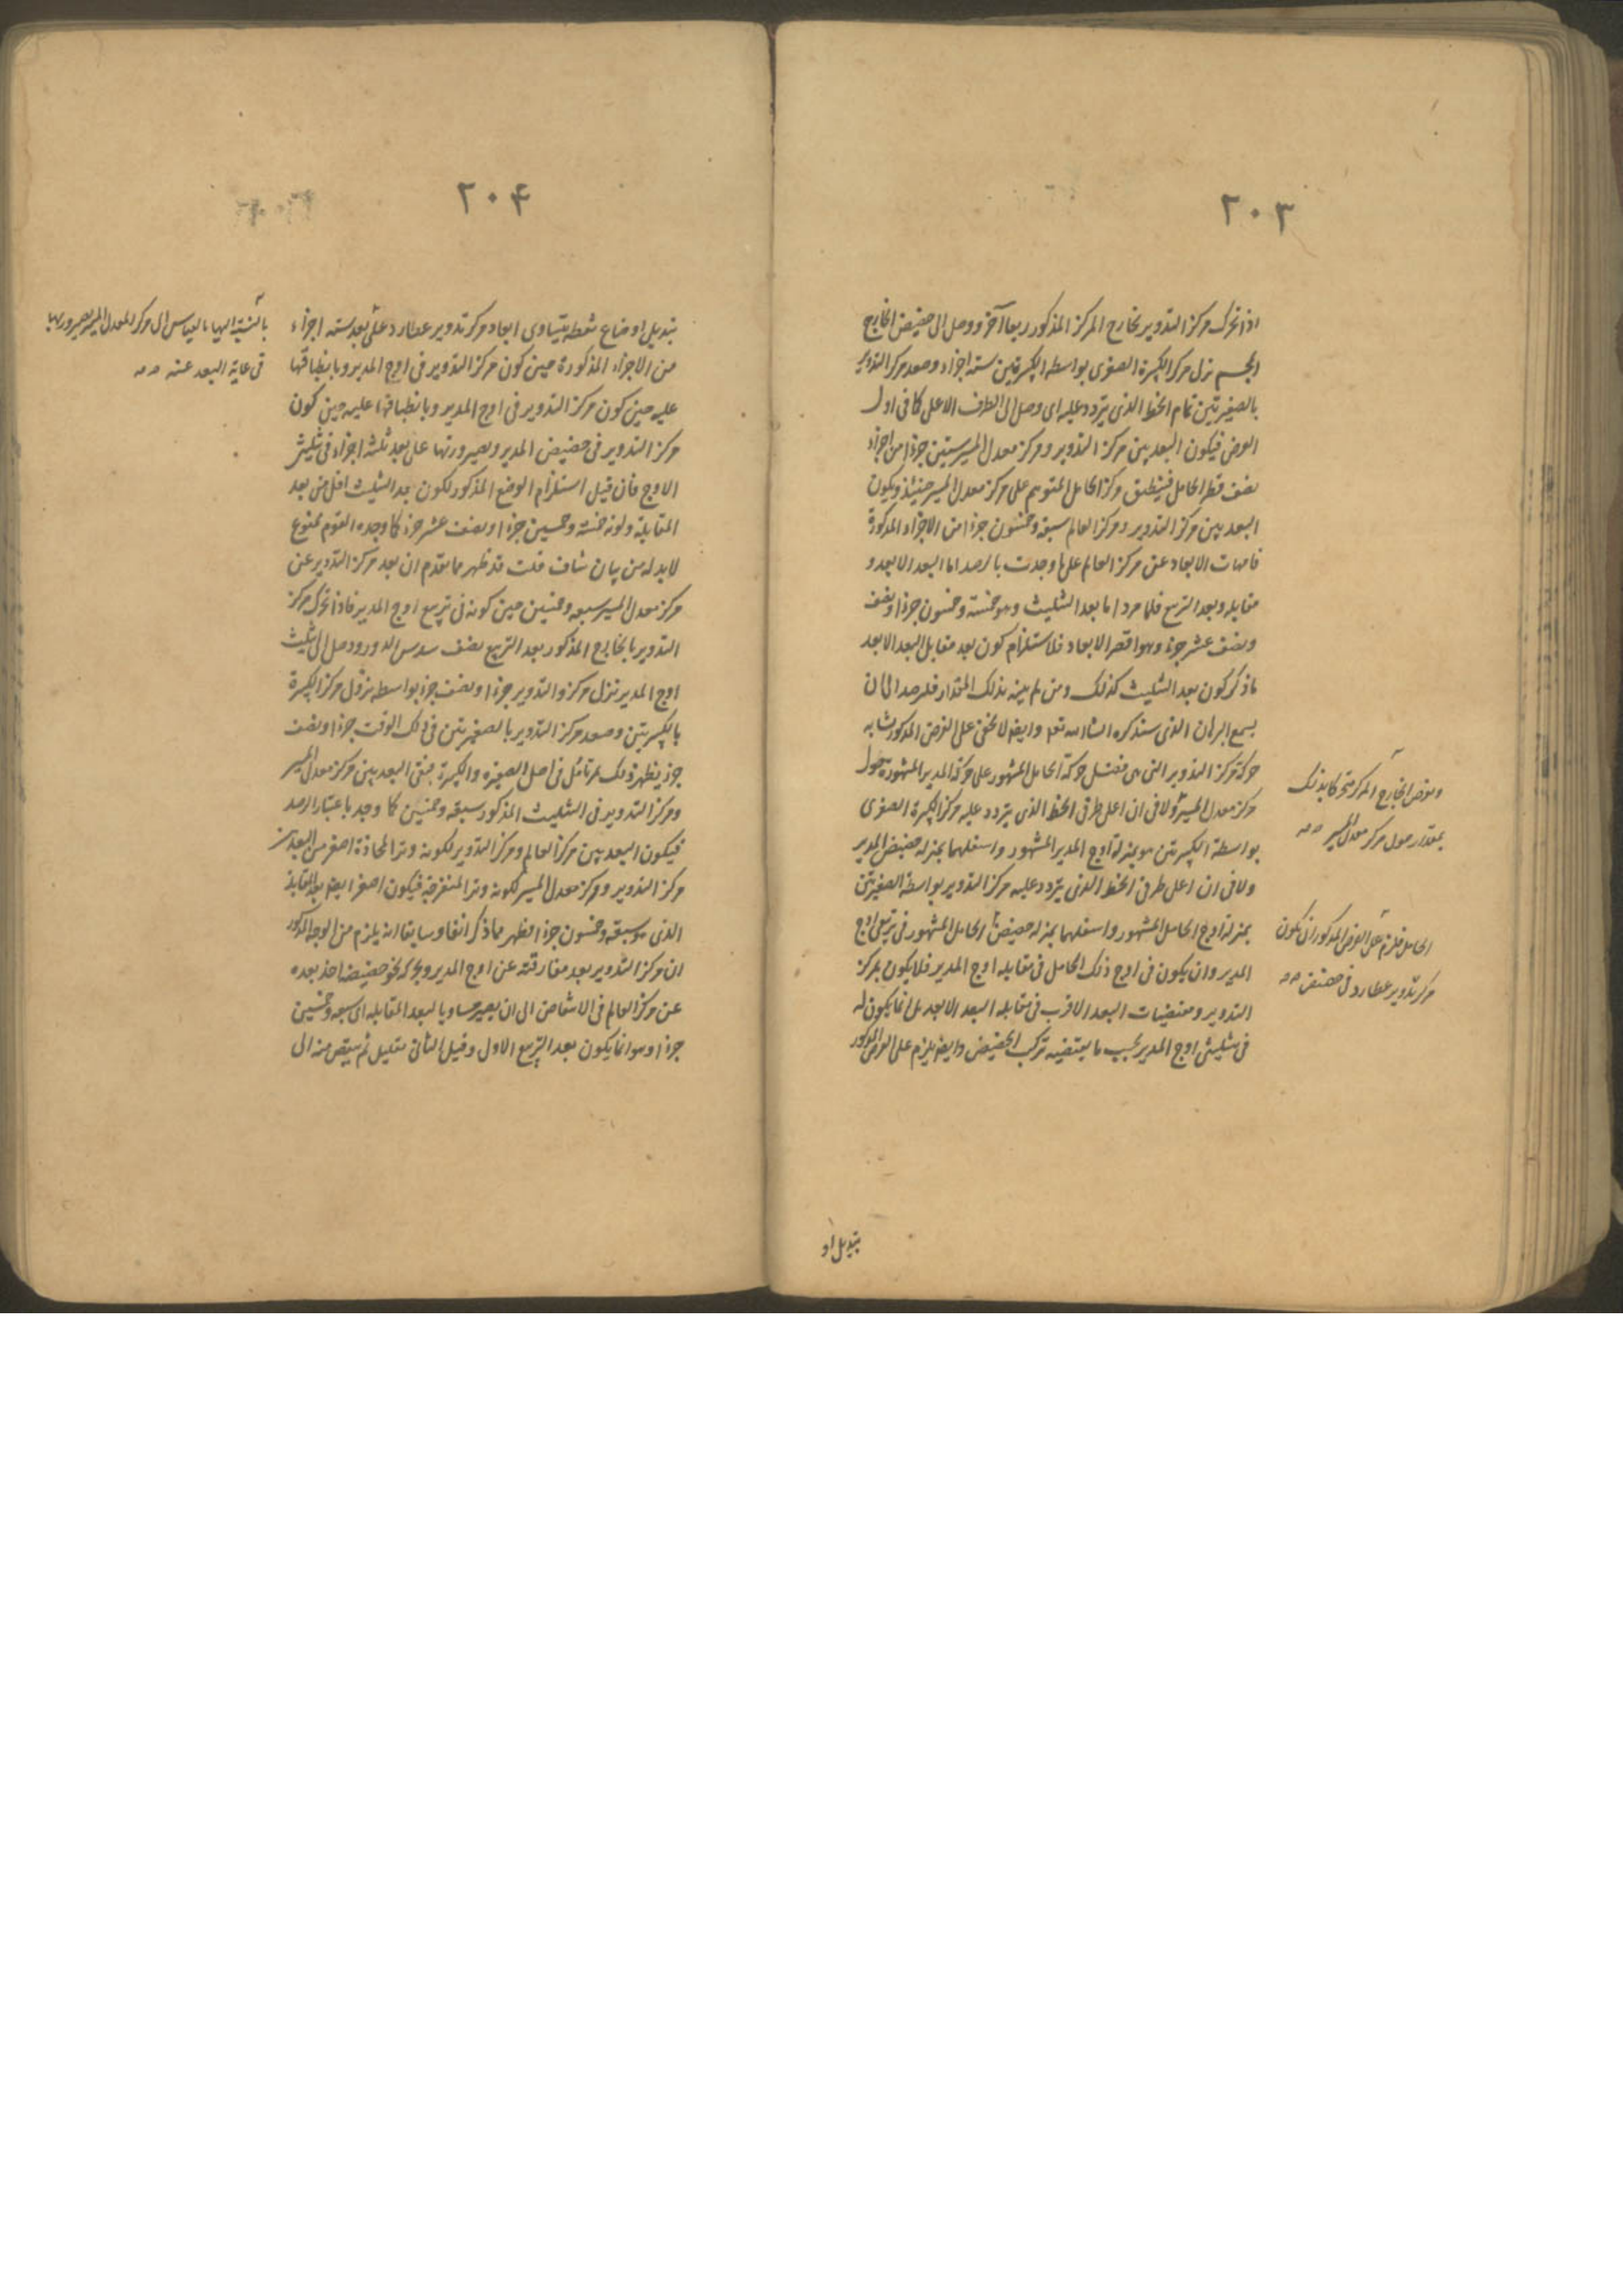 ٢٠٣
اذا تحرك مركز التدوير بخارج المركز المذكور ربعا آخر ووصل الى حضيض الخارج
المجسم نزل مركز الكبيرة الصغرى بواسطة الكبيرتين ستة اجزاء وصعد مركز التدوير
بالصغيرتين تمام الخط الذى يتردد عليه اى وصل الى الطرف الاعلى كما فى اول
الوضع فيكون البعد بين مركز التدوير ومركز معدل المسير ستين جزءا من اجزاء
نصف قطر الحامل فينطبق مركز الحامل المتوهم على مركز معدل المسير حينئذ ويكون
البعد بين مركز التدوير ومركز العالم سبعة وخمسون جزءا من الاجزاء المذكورة
فامهات الابعاد عن مركز العالم على ما وجدت بالرصد اما البعد الابعد و
مقابله وبعد التربيع فلما مر واما بعد التثليث وهو خمسة وخمسون جزءا ونصف
ونصف عشر جزء وهو اقصر الابعاد فلاستلزام كون بعد مقابل البعد الابعد
ما ذكر كون بعد التثليث كذلك ومن لم يتيقن بذلك المقدار فليرصد الى ان
يسمع البرهان الذى سنذكره ان شاء الله تعالى وايضا لا يخفى على الفرض المذكور تشابه
حركة مركز التدوير التى هى فضل حركة الحامل المشهور على حركة المدير المشهورة حول
مركز معدل المسير ولا فى ان اعلى طرفى الخط الذى يتردد عليه مركز الكبيرة الصغرى
بواسطة الكبيرتين هو بمنزلة اوج المدير المشهور واسفلهما بمنزلة حضيض المدير
ولا فى ان اعلى طرفى الخط الذى يتردد عليه مركز التدوير بواسطة الصغيرتين
بمنزلة اوج الحامل المشهور واسفلهما بمنزلة حضيض الحامل المشهور فى تربيعى اوج
المدير وان يكون فى اوج ذلك الحامل فى مقابلة اوج المدير فلا يكون لمركز
التدوير ومقتضيات البعد الاقرب فى مقابلة البعد الابعد بل انما يكون له
فى تثليثى اوج المدير بحسب ما يقتضيه تركب الحضيض وايضا يلزم على الفرض المذكور
وبفرض الخارج المركز متحركا بذلك
بمقدار حول مركز معدل المسير صح
الحامل فيلزم على الفرض المذكور ان يكون
مركز تدوير عطارد فى حضيض صح
تبديل او
٢٠٤
تبديل اوضاع نقطة يتساوى ابعاد مركز تدوير عطارد على بعد ستة اجزاء
من الاجزاء المذكورة حين كون مركز التدوير فى اوج المدير وبانطباقها
عليه حين كون مركز التدوير فى اوج المدير وبانطباقها عليه حين كون
مركز التدوير فى حضيض المدير وبصيرورتها على بعد ثلثة اجزاء فى تثليث
الاوج فان قيل استلزام الوضع المذكور لكون بعد التثليث اقل من بعد
المقابلة وكونه خمسة وخمسين جزءا ونصف عشر جزء كما وجده القوم ممنوع
لابد له من بيان شاف قلت قد ظهر مما تقدم ان بعد مركز التدوير عن
مركز معدل المسير سبعة وخمسين حين كونه فى تربيع اوج المدير فاذا تحرك مركز
التدوير بالخارج المذكور بعد التربيع نصف سدس الدور ووصل الى تثليث
اوج المدير نزل مركز التدوير جزءا ونصف جزء بواسطة نزول مركز الكبيرة
بالكبيرتين وصعد مركز التدوير بالصغيرتين فى ذلك الوقت جزءا ونصف
جزء يظهر ذلك لمن تامل فى اصل الصغيرة والكبيرة فبقى البعد بين مركز معدل المسير
ومركز التدوير فى التثليث المذكور سبعة وخمسين كما وجد باعتبار الرصد
فيكون البعد بين مركز العالم ومركز التدوير لكونه وتر الحادة اصغر من البعد بين
مركز التدوير ومركز معدل المسير لكونه وتر المنفرجة فيكون اصغر ايضا من بعد المقابلة
الذى هو سبعة وخمسون جزءا فظهر مما ذكر آنفا وسابقا انه يلزم من الوجه المذكور
ان مركز التدوير بعد مفارقته عن اوج المدير وبحركته نحو حضيضه اخذ بعده
عن مركز العالم فى الانتقاص الى ان يصير مساويا لبعد المقابلة اى سبعة وخمسين
جزءا وهو انما يكون بعد التربيع الاول وقبل الثانى بقليل ثم ينقص منه الى
بالنسبة اليها بالقياس الى مركز المعدل المسير بصيرورتها
فى غاية البعد عنه صح